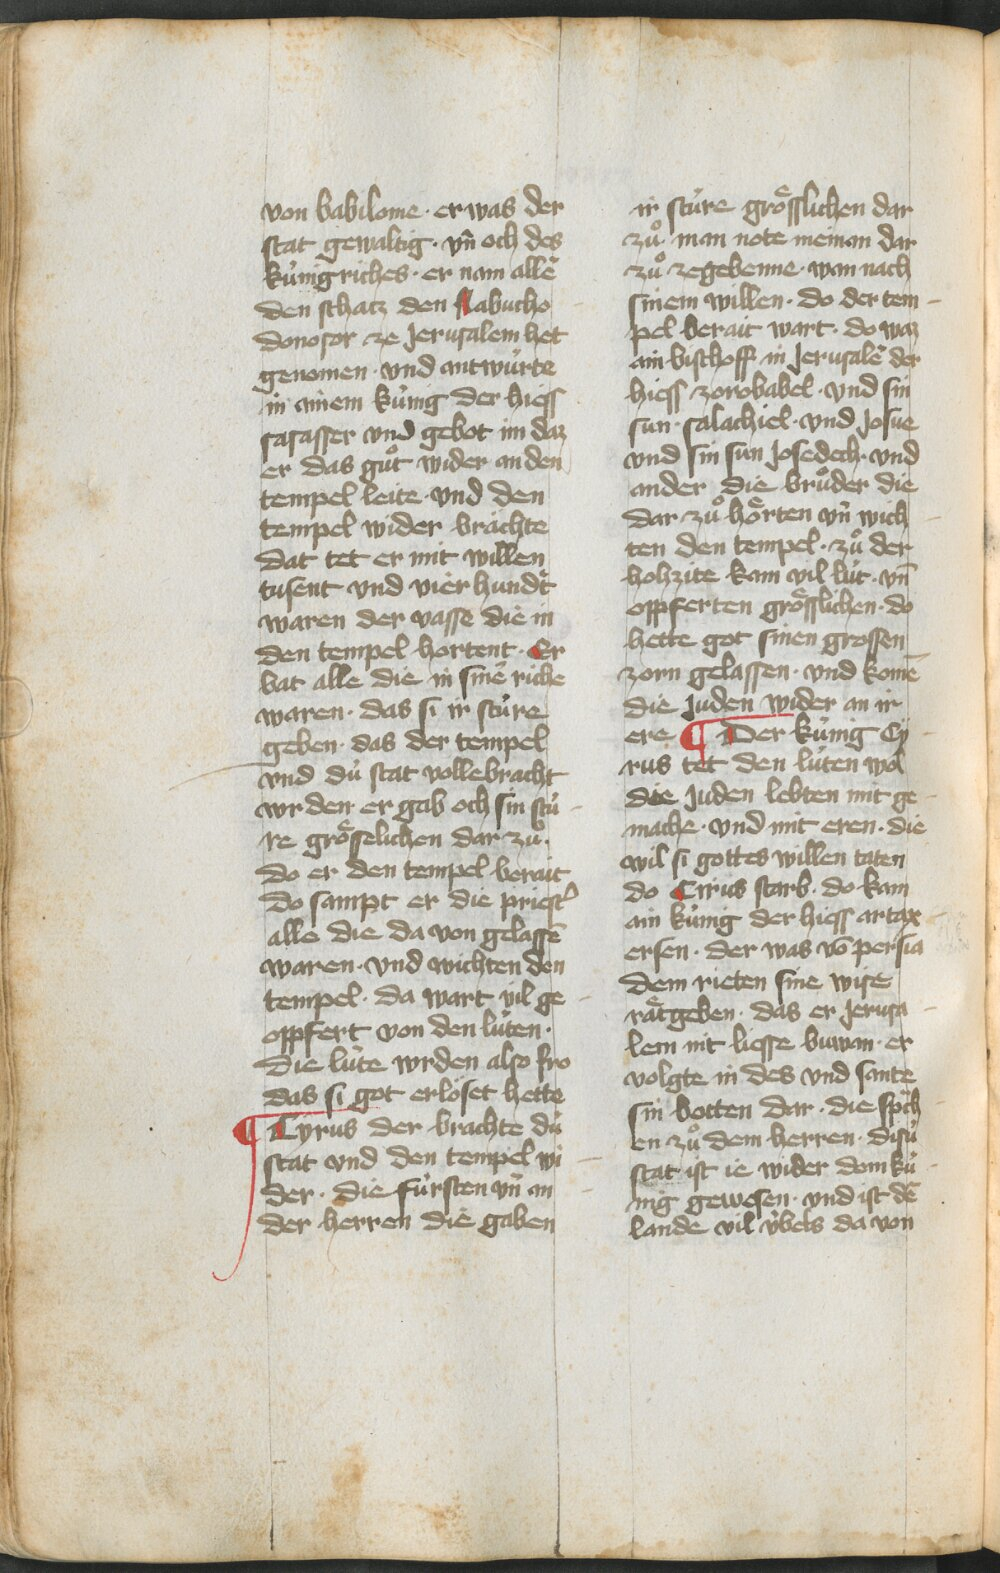 von babilonie · er was der
stat gewaltig · vn̄ och des
kúnigriches · er nam allē
den schatz den Nabucho
donosor ze Jerusalem het
genomen · vnd antwúrte
in ainem kúnig der hiess
sasasser vnd gebot im daz
er das guͦt wider an den
tempel leite · vnd den
tempel wider brächte
dat tet er mit willen
tusent vnd vier hundt̾
waren der vasse die in
den tempel hortent · Er
bat alle die in sinē riche
waren · das si ir stúre
geben · das der tempel
vnd dú stat vollebracht
wrden · er gab och sin stú
re groͤsselichen dar zuͦ ·
do er den tempel berait
do sampt er die priest̾
alle die da von gelassē
waren · vnd wichten den
tempel · da wart vil ge
oppfert von den lúten ·
die lúte wrden also fro
das si got erlöset hette
¶ Cyrus der brachte dú
stat vnd den tempel wi
der · die fúrsten vn̄ an
der herren die gaben
ir stúre groͤsslichen dar
zuͦ · man note nieman dar
zuͦ zegebenne · wan nach
sinem willen · do der tem
pel berait wart · do waz
ain bischoff in Jerusalē der
hiess zorobabel · vnd sin
sun · salachiel · vnd Josue
vnd sin sun Josedech · vnd
ander die bruͦder die
dar zuͦ hoͤrten vn̄ wich
ten den tempel · zuͦ der
hohzite kam vil lút · vn̄
oppferten groͤsslichen · do
hette got sinen grossen
zorn gelassen · vnd komē
die Juden wider an ir
ere ¶ Der kúnig Cy
rus tet den lúten wol
die Juden lebten mit ge
mache · vnd mit eren · die
wil si gottes willen taten
do Cirus starb · do kam
ain kúnig der hiess artax
ersen · der was vō persia
dem rieten sine wise
raͤtgeben · das er Jerusa
lem nit liesse buwan · er
volgte in des vnd sante
sin botten dar · die sp̾ch
en zuͦ dem herren · disú
stat ist ie wider dem kú
nig gewesen · vnd ist dē
lande vil v́bels da von